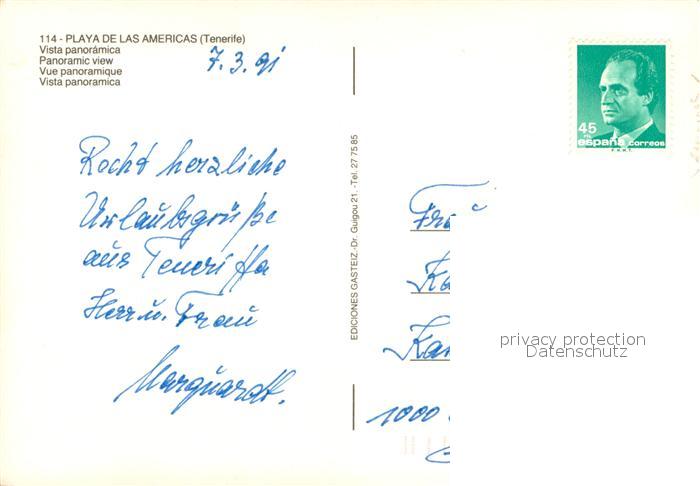 114 - PLAYA DE LAS AMERICAS (Tenerife)
Vista panorámica
Panoramic view
Vue panoramique
Vista panoramica
7.3.91
Recht herzliche
Urlaubsgrüße
aus Teneriffa
Herr u. Frau
Marquardt.
EDICIONES GASTEIZ.-Dr. Guigou 21. -Tel. 27 75 85
45
españa correos
F.N.M.T.
1000
privacy protection
Datenschutz